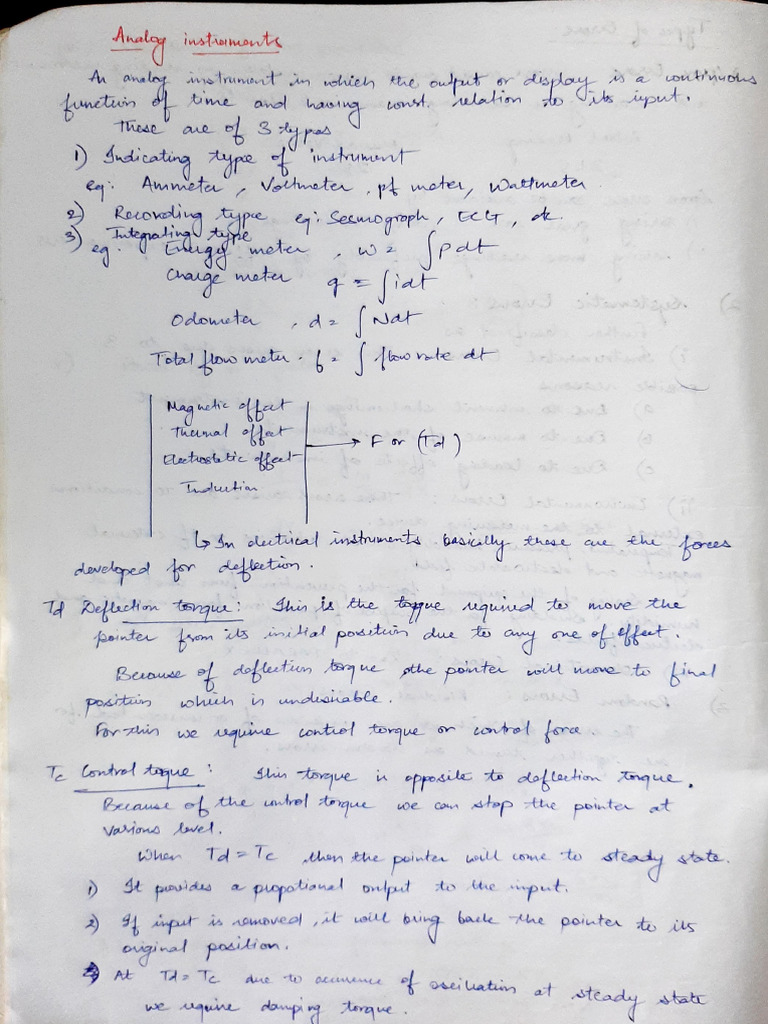 Analog instruments
An analog instrument in which the output or display is a continuous
function of time and having const. relation to its input.
These are of 3 types
1) Indicating type of instrument
eg: Ammeter, Voltmeter, pf meter, Wattmeter
2) Recording type eg: Seesmograph, ECG, etc.
3) Integrating type
eg. Energy meter, w = ∫pdt
Charge meter q = ∫idt
Odometer, d = ∫Ndt
Total flow meter. f = ∫ flow rate dt
Magnetic effect
Thermal effect
Electrostatic effect
Induction
→ F or (Td)
↳ In electrical instruments basically these are the forces
developed for deflection.
Td Deflection torque: This is the torque required to move the
pointer from its initial position due to any one of effect.
Because of deflection torque the pointer will move to final
position which is undesirable.
For this we require control torque or control force
Tc Control torque: This torque is opposite to deflection torque.
Because of the control torque we can stop the pointer at
various level.
When Td = Tc then the pointer will come to steady state.
1) It provides a propotional output to the input.
2) If input is removed, it will bring back the pointer to its
original position.
3) At Td = Tc due to occurence of oscillation at steady state
we require damping torque.